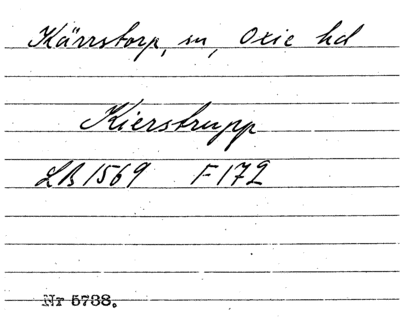 Kärrstorp, sn, Oxie hd
Kierstrupp
LB 1569 F 172
Nr 5738.